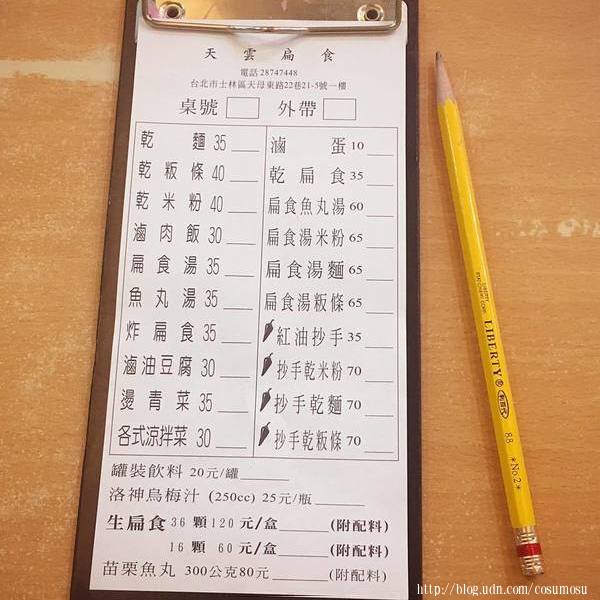 天雲扁食
電話 28747448
台北市士林區天母東路22巷21-5號一樓
桌號 外帶
乾麵 35
乾粄條 40
乾米粉 40
滷肉飯 30
扁食湯 35
魚丸湯 35
炸扁食 35
滷油豆腐 30
燙青菜 35
各式涼拌菜 30
滷蛋 10
乾扁食 35
扁食魚丸湯 60
扁食湯米粉 65
扁食湯麵 65
扁食湯粄條 65
紅油抄手 35
抄手乾米粉 70
抄手乾麵 70
抄手乾粄條 70
罐裝飲料 20元/罐
洛神烏梅汁 (250cc) 25元/瓶
生扁食 36顆120元/盒 (附配料)
16顆 60元/盒 (附配料)
苗栗魚丸 300公克80元 (附配料)
LIBERTY
88
*No.2*
http://blog.udn.com/cosumosu